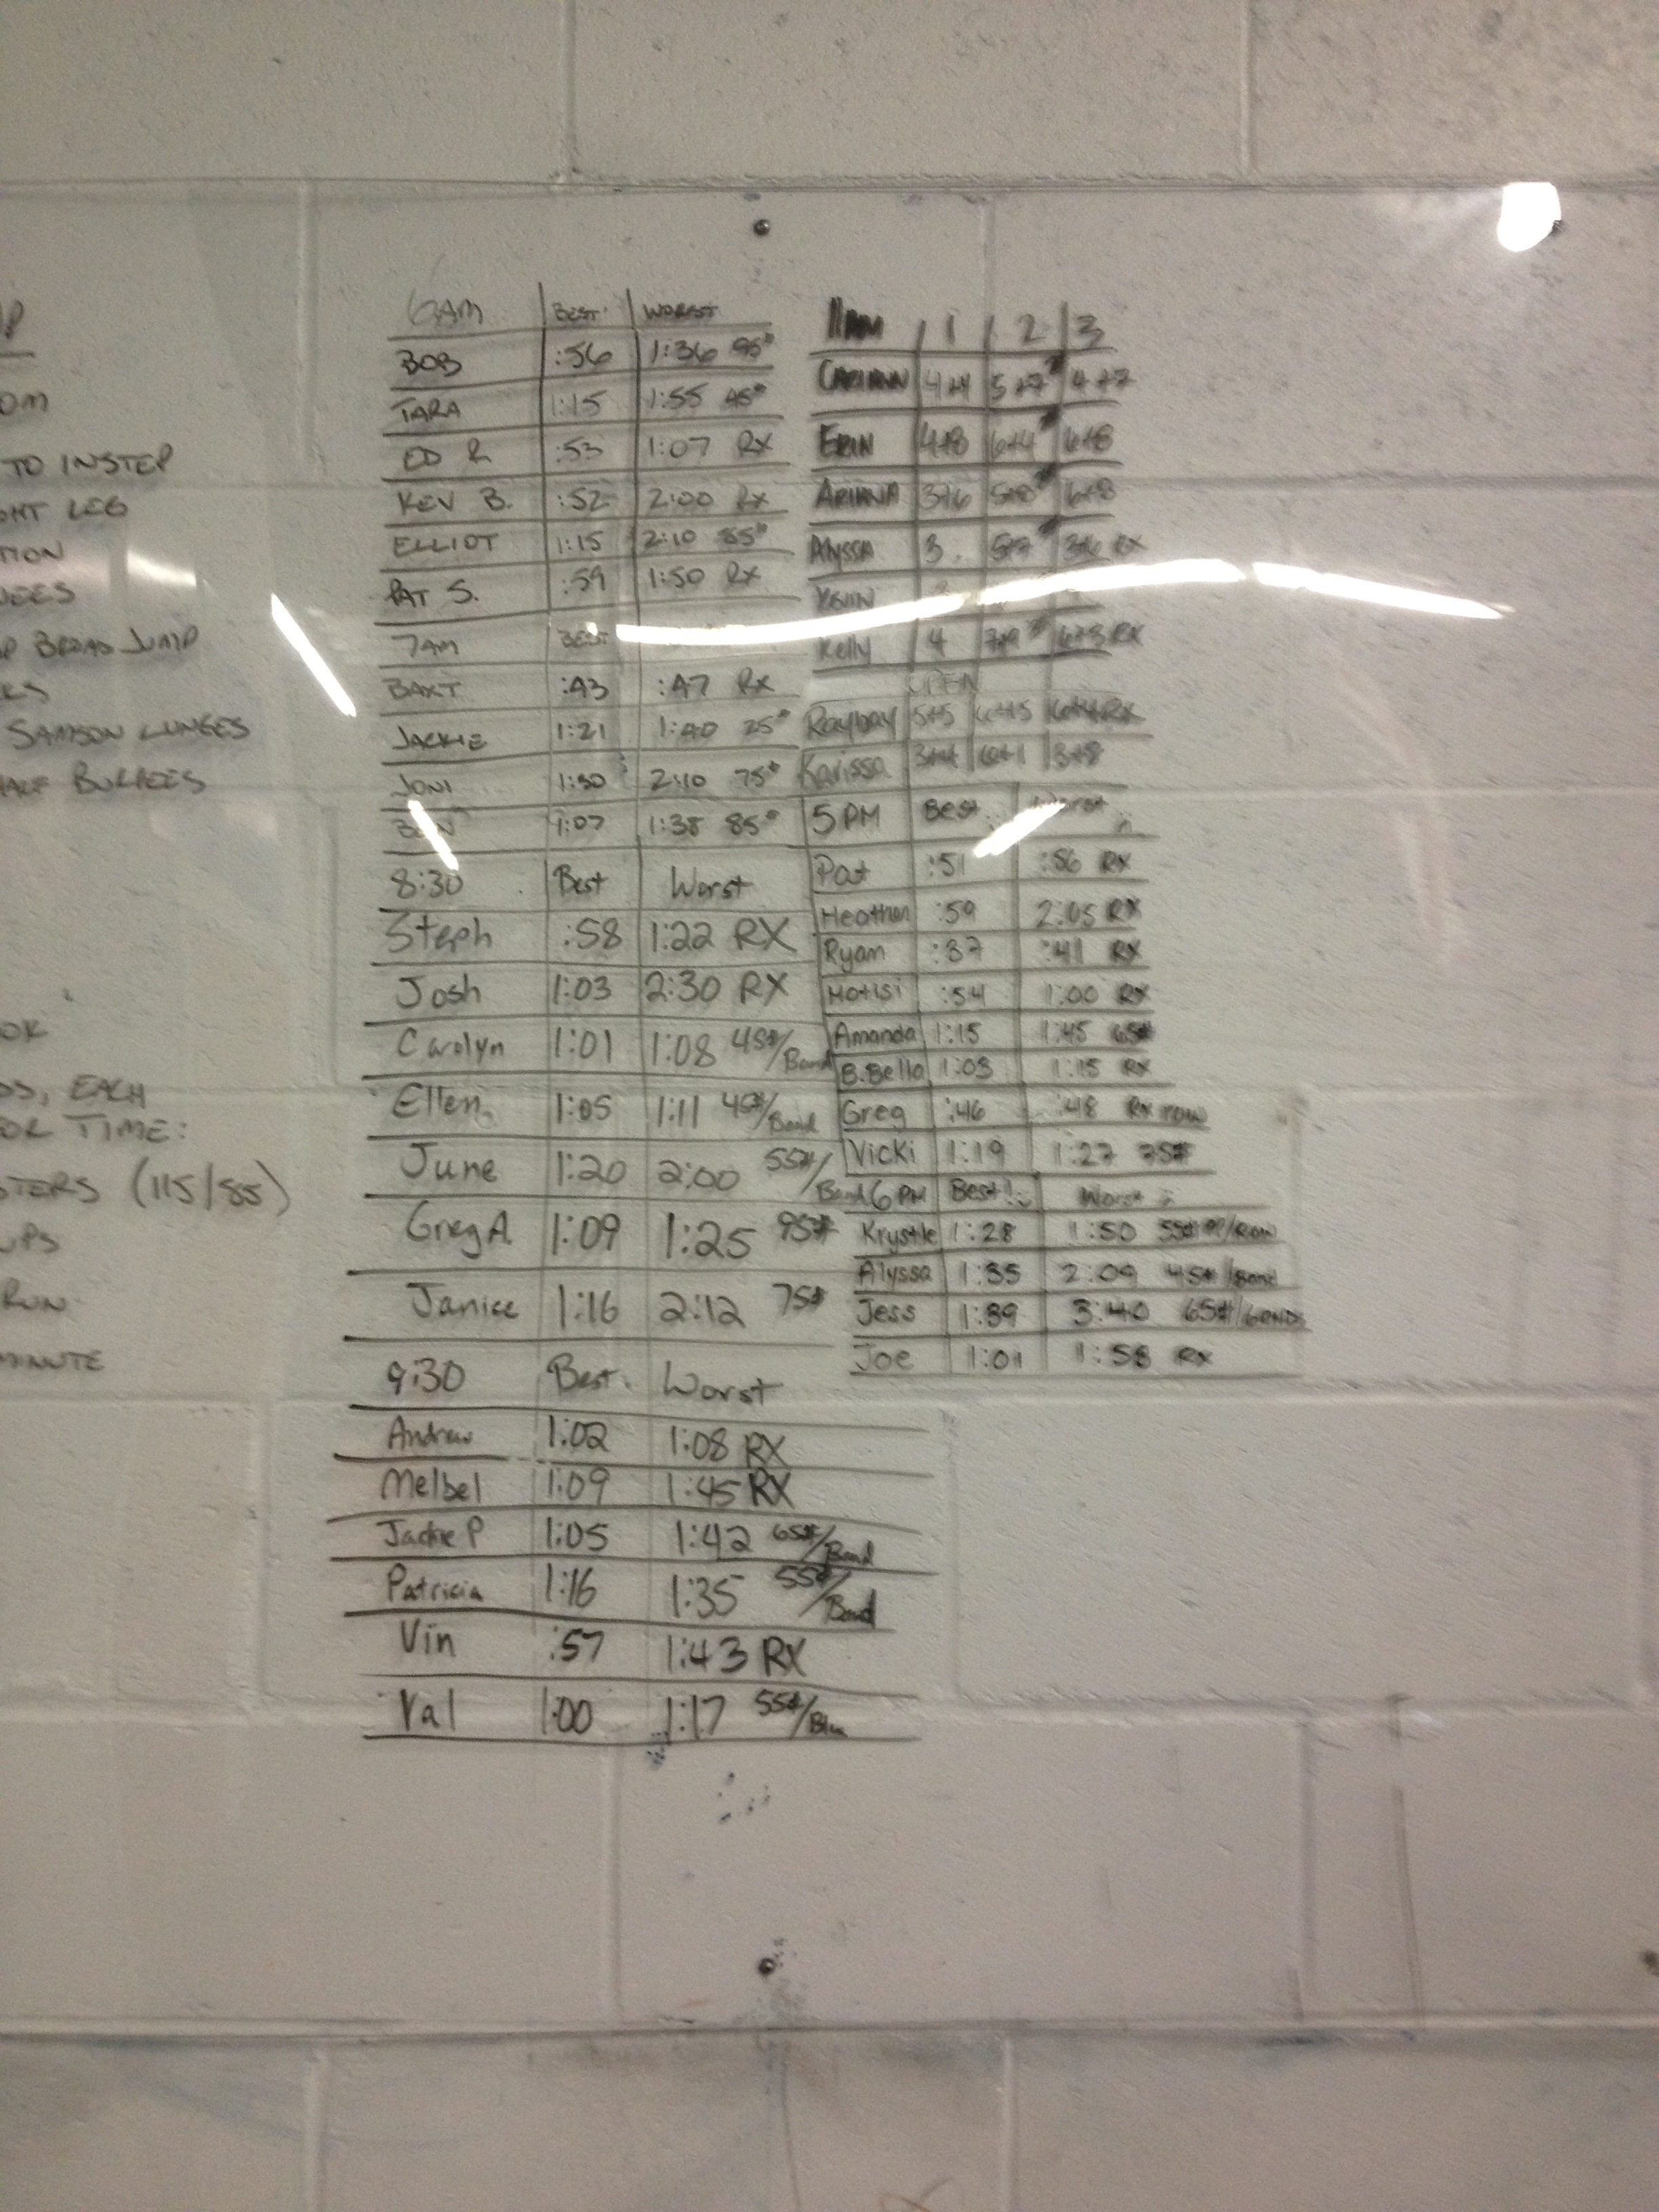 TO INSTEP
LEG
BROAD JUMP
SAMSON LUNGES
HALF BURPEES
EACH
FOR TIME:
(115/85)
RUN
MINUTE
6AM BEST WORST
BOB :56 1:36 95#
TARA 1:15 1:55 45#
ED R :53 1:07 RX
KEV B. :52 2:00 RX
ELLIOT 1:15 2:10 55#
PAT S. :59 1:50 RX
7AM BEST
BAXT :43 :47 RX
JACKIE 1:21 1:40
JONI 1:30 2:10 75#
BEN 1:07 1:38 85#
8:30 Best Worst
Steph :58 1:22 RX
Josh 1:03 2:30 RX
Carolyn 1:01 1:08 45#/Band
Ellen 1:05 1:11 45#/Band
June 1:20 2:00 55#/Band
Greg A. 1:09 1:25 95#
Janice 1:16 2:12 75#
9:30 Best Worst
Andrew 1:02 1:08 RX
Melbel 1:09 1:45 RX
Jackie P 1:05 1:42 65#/Band
Patricia 1:16 1:35 55#/Band
Vin :57 1:43 RX
Val 1:00 1:17 55#/Blue
11AM 1 2 3
4+4 5+7 4+7
ERIN 4+8 6+4 6+8
ARIANA 3+6 5+8 6+8
Alyssa 3 5+7 3+6 RX
Kelly 4 7+9 6+3 RX
OPEN
Rayray 5+5 6+15 6+4 RX
Karissa 3+4 6+1 3+8
5 PM Best Worst
Pat :51 :56 RX
Heather :59 2:05 RX
Ryan :37 :41 RX
:54 1:00 RX
Amanda 1:15 1:45 65#
B.Bella 1:03 1:15 RX
Greg :46 :48 RX row
Vicki 1:19 1:27 75#
6 PM Best! Worst
Krystle 1:28 1:50 55# /Row
Alyssa 1:35 2:09 45#/Band
Jess 1:39 3:40 65#/bands
Joe 1:01 1:58 RX